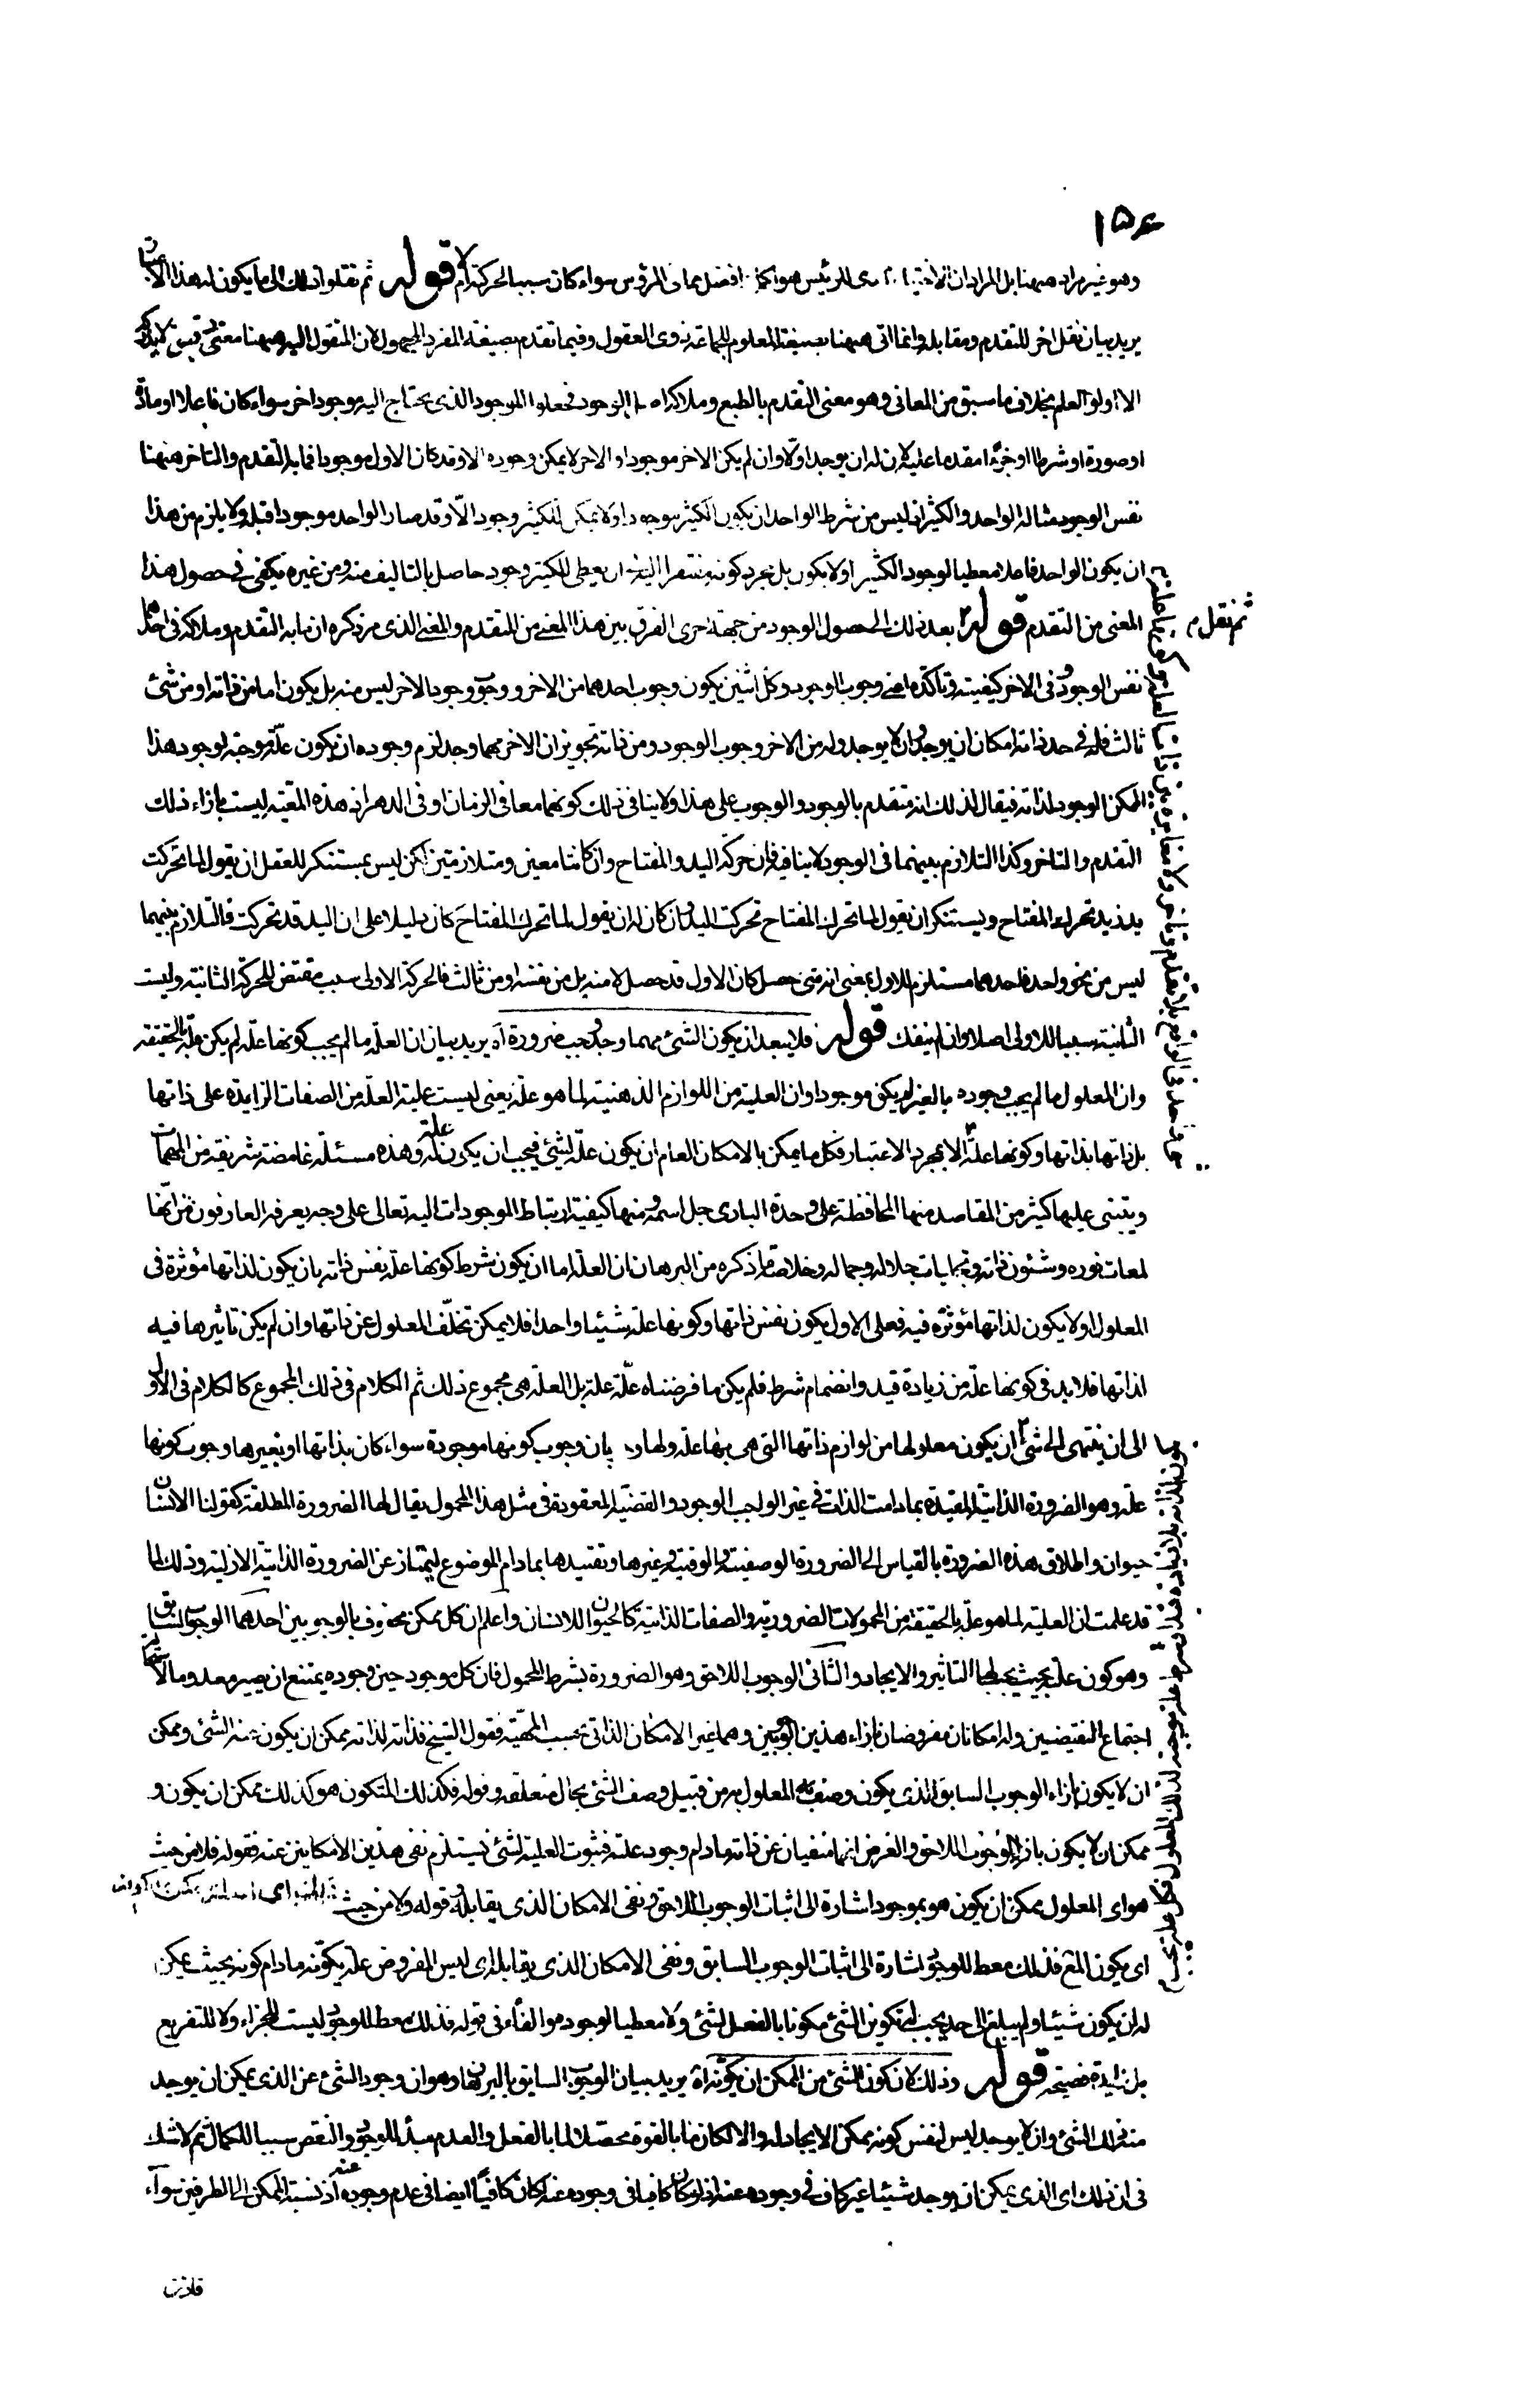 ١٥٤
وهو غير مراد ههنا بل المراد ان الرئيس هو افضل مما فى المرؤس سواء كان سببا لحركة ام لا قوله ثم نقلوا ذلك الى ما يكون له هذا الاعتبار
يريد بيان نقل اخر للتقدم ومقابله وانما اتى ههنا بصيغة المعلوم للجماعة ذوى العقول وفيما تقدم بصيغة المفرد المجهول لان المنقول اليه ههنا معنى دقيق لا يدركه
الا اولوا العلم بخلاف ما سبق من المعانى وهو معنى التقدم بالطبع وملاكه الوجود فجعلوا الموجود الذى يحتاج اليه موجود اخر سواء كان فاعلا او مادة
او صورة او شرطا او جزءا مقدما عليه لان له ان يوجد اولا وان لم يكن الاخر موجودا و الاخر لا يمكن وجوده الا وقد كان الاول موجودا فما به التقدم والتاخر ههنا
نفس الوجود مثاله الواحد والكثير فانه ليس من شرط الواحد ان يكون الكثير موجودا ولا يمكن للكثير وجود الّا وقد صار الواحد موجودا قبله ولا يلزم من هذا
ان يكون الواحد فاعلا معطيا لوجود الكثير او لا يكون بل مجرد كونه مفتقرا اليه ان يعطى للكثير وجود حاصل بالتاليف منه ومن غيره يكفى فى حصول هذا
المعنى من التقدم قوله ثم نقل بعد ذلك الى حصول الوجود من جهة اخرى الفرق بين هذا المعنى من التقدم والمعنى الذى مر ذكره ان ما به التقدم وملاكه فى احدهما
نفس الوجود وفى الاخر كيفيته فى تأكده اعنى وجوب الوجود وكل اثنين يكون وجوب احدهما من الاخر ووجوب وجود الاخر ليس منه بل يكون اما من ذاته او من شئ
ثالث فله فى حد ذاته امكان ان يوجد وان لا يوجد وله من الاخر وجوب الوجود ومن ذاته تجويز ان الاخر مهما وجد لزم وجوده ان يكون علة موجبة لوجود هذا
الممكن الوجود لذاته فيقال لذلك انه متقدم بالوجود والوجوب على هذا ولا ينافى ذلك كونهما معا فى الزمان او فى الدهر اذ هذه المعية ليست بازاء ذلك
التقدم والتاخر وكذا التلازم بينهما فى الوجود لا ينافيه فان حركة اليد والمفتاح وان كانتا معين ومتلازمتين لكن ليس بمستنكر للعقل ان يقول لما تحركت
يد زيد تحرك المفتاح ويستنكر ان يقول لما تحرك المفتاح تحركت اليد وان كان له ان يقول لما تحرك المفتاح كان دليلا على ان اليد قد تحركت فالتلازم بينهما
ليس من نحو واحد فاحدهما مستلزم للاول بمعنى انه متى حصل كان الاول قد حصل لا منه بل من نفسه او من ثالث فالحركة الاولى سبب مقتض للحركة الثانية وليست
الثانية سببا للاولى اصلا وان لم ينفك قوله فلا يبعد ان يكون الشئ مهما وجد وجب ضرورة اه يريد بيان ان العلة ما لم يجب كونها علة لم يكن علة بالحقيقة
وان المعلول ما لم يجب وجوده بالغير لم يكن موجودا وان العلية من اللوازم الذهنية لما هو علة يعنى ليست علية العلة من الصفات الزايدة على ذاتها
بل ذاتها بذاتها وكونها علة الا بمجرد الاعتبار فكل ما يمكن بالامكان العام ان يكون علة لشئ فيجب ان يكون علة له وهذه مسئلة غامضة شريفة من المهمات
ويتبنى عليها كثير من المقاصد منها المحافظة على وحدة البارى جل اسمه ومنها كيفية ارتباط الموجودات اليه تعالى على وجه يعرفه العارفون من انها
لمعات نوره وشئون ذاته وتجليات جلاله وجماله وخلاصة ما ذكره من البرهان ان العلة اما ان يكون شرط كونها علة نفس ذاته بان يكون لذاتها مؤثرة فى
المعلول او لا يكون لذاتها مؤثرة فيه فعلى الاول يكون نفس ذاتها وكونها علة شيئا واحدا فلا يمكن تخلّف المعلول عن ذاتها وان لم يكن تاثيرها فيه
لذاتها فلا بد فى كونها علة من زيادة قيد وانضمام شرط فلم يكن ما فرضناه علّة علة بل العلة هى مجموع ذلك ثم الكلام فى ذلك المجموع كالكلام فى الاول
الى ان ينتهى الى شئ ان يكون معلولها من لوازم ذاتها التى هى بها علة ولها بان وجوب كونها موجودة سواء كان بذاتها او بغيرها وجوب كونها
علة وهو الضرورة الذاتية المقيدة بما دامت الذات فى غير الواجب الوجود والقضية المعقودة فى مثل هذا المحمول يقال لها الضرورة المطلقة كقولنا الانسان
حيوان واطلاق هذه الضرورة بالقياس الى الضرورة الوصفية والوقتية وغيرها وتقييدها بمادام الموضوع ليمتاز عن الضرورة الذاتية الازلية وذلك لما
قد علمت ان العلية لما هو علة بالحقيقة من المحمولات الضرورية والصفات الذاتية كالحيوان للانسان واعلم ان كل ممكن محفوف بالوجوبين احدهما الوجوب السابق
وهو كون علته بحيث يجب لها التاثير والايجاد والثانى الوجوب اللاحق وهو الضرورة بشرط المحمول فان كل موجود حين وجوده يمتنع ان يصير معدوما لاستحالة
اجتماع النقيضين وله امكانان مفروضان بازاء هذين الوجوبين وهما غير الامكان الذاتى بحسب المهية فقول الشيخ فذاته لذاته ممكن ان يكون عنه الشئ وممكن
ان لا يكون بازاء الوجوب السابق الذى يكون وصف المعلول به من قبيل وصف الشئ بحال متعلقه وقوله فكذلك المتكون هو كذلك ممكن ان يكون و
ممكن ان لا يكون بازاء الوجوب اللاحق والغرض انهما منفيان عن ذاته مادام وجود علته فثبوت العلية لشئ يستلزم نفى هذين الامكانين عنه فقوله فلا من حيث
هو اى المعلول ممكن ان يكون هو بموجود اشارة الى اثبات الوجوب اللاحق ونفى الامكان الذى يقابله وقوله ولا من حيث
اى يكون الشئ فذلك معط للوجود اشارة الى اثبات الوجوب السابق ونفى الامكان الذى يقابله اى ليس المفروض علة يكونه مادام كونه بحيث يمكن
له ان يكون شيئا ولم يبلغ الى حد يجب له تكوين الشئ مكونا بالفعل لشئ ولا معطيا لوجود هو الفاء فى قوله فذلك معط للوجود ليست للجزاء ولا للتفريع
بل زايدة فصيحة قوله وذلك لان كون الشئ من الممكن ان يكونه اه يريد بيان الوجوب السابق بالبرهان وهو ان وجود الشئ عن الذى يمكن ان يوجد
منه ذلك الشئ وان لا يوجد ليس لنفس كونه ممكن الايجاد له والا لكان ما بالقوة محصلا لما بالفعل والعدم مبدأ للوجود والنقص سببا للكمال ثم لا شك
فى ان ذلك اى الذى يمكن ان يوجد شيئا غير كاف فى وجوده عنه اذ لو كان كافيا فى وجوده عنه لكان كافيا ايضا فى عدم وجوده عنه اذ نسبة الممكن الى الطرفين سواء